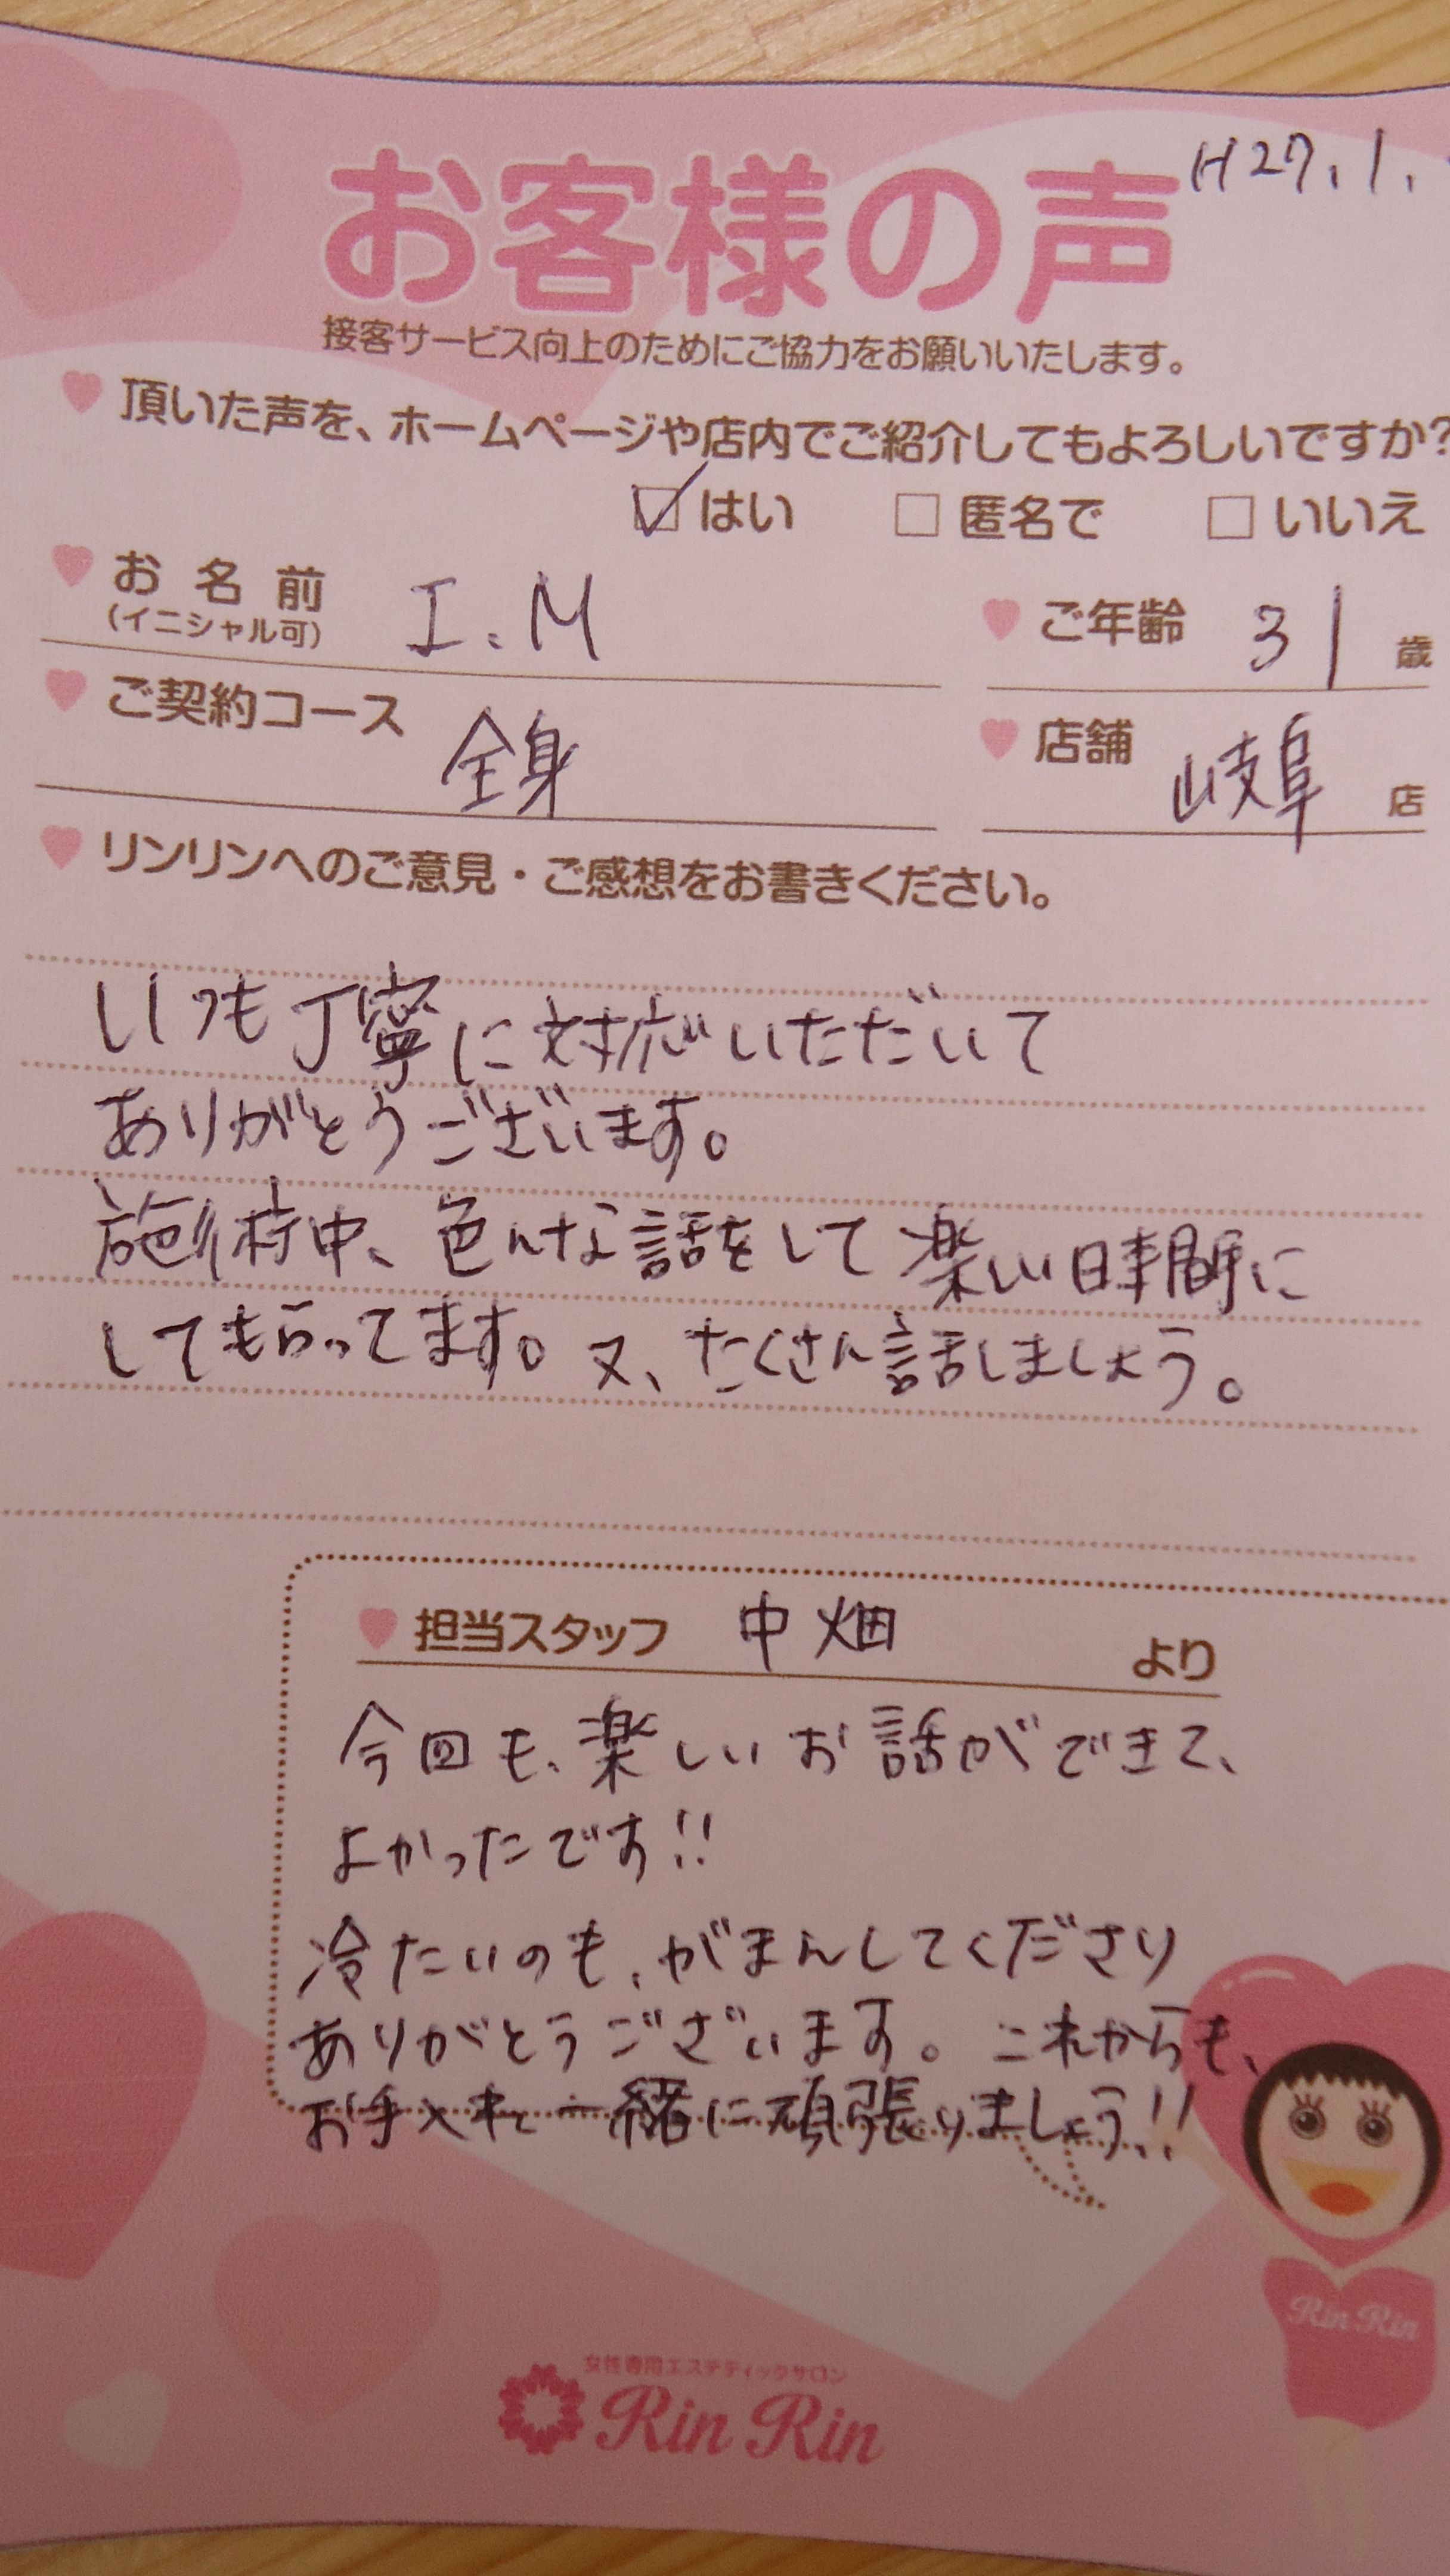 H27.1.
お客様の声
接客サービス向上のためにご協力をお願いいたします。
頂いた声を、ホームページや店内でご紹介してもよろしいですか?
はい 匿名で いいえ
お名前 I.M ご年齢 31 歳
(イニシャル可)
ご契約コース 全身 店舗 岐阜 店
リンリンへのご意見・ご感想をお書きください。
いつも丁寧に対応いただいて
ありがとうございます。
施術中、色んな話をして楽しい時間に
してもらってます。又、たくさん話しましょう。
担当スタッフ 中畑 より
今回も、楽しいお話ができて、
よかったです!!
冷たいのも、がまんしてくださり
ありがとうございます。これからも、
お手入れ一緒に頑張りましょう!!
Rin Rin
女性専用エステティックサロン
Rin Rin